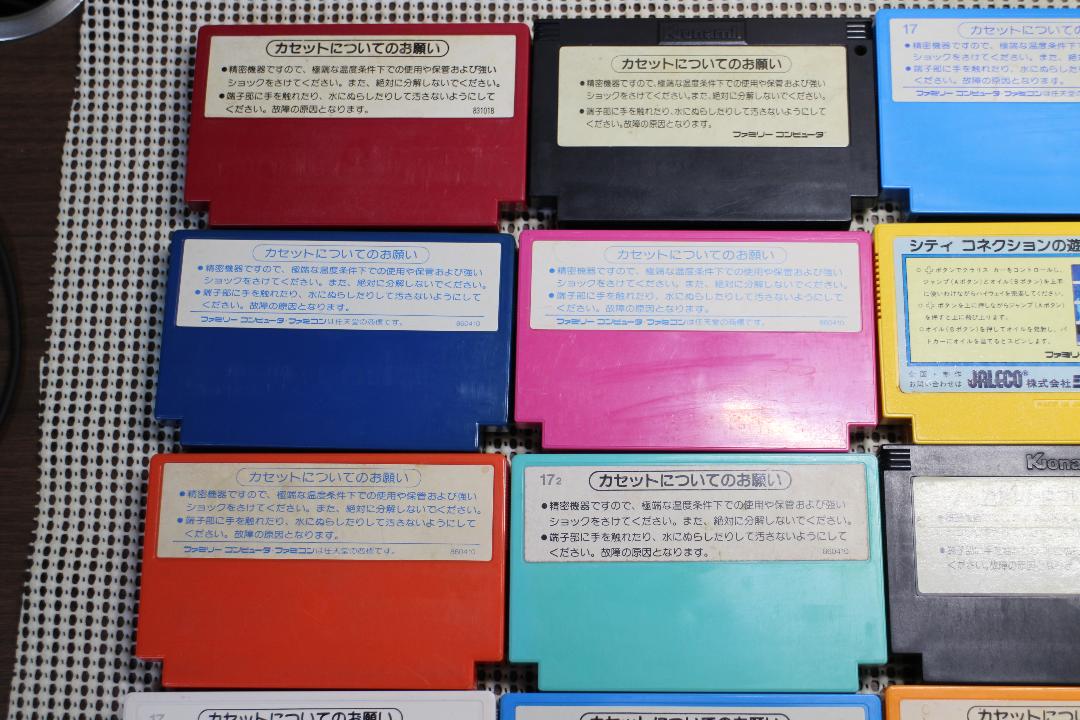 カセットについてのお願い
●精密機器ですので、極端な温度条件下での使用や保管および強い
ショックをさけてください。また、絶対に分解しないでください。
●端子部に手を触れたり、水にぬらしたりして汚さないようにして
ください。故障の原因となります。
831018
Konami
カセットについてのお願い
●精密機器ですので、極端な温度条件下での使用や保管および強い
ショックをさけてください。また、絶対に分解しないでください。
●端子部に手を触れたり、水にぬらしたりして汚さないようにして
ください。故障の原因となります。
ファミリー コンピュータ
17
カセットに
●精密機器ですので、極端な
ショックをさけてくださ
●端子部に手を触れたり、水にぬらした
ください。故障の原因となります。
ファミリー コンピュータ・ファミコンは任天堂
カセットについてのお願い
●精密機器ですので、極端な温度条件下での使用や保管および強い
ショックをさけてください。また、絶対に分解しないでください。
●端子部に手を触れたり、水にぬらしたりして汚さないようにして
ください。故障の原因となります。
ファミリー コンピュータ・ファミコンは任天堂の商標です。 860410
カセットについてのお願い
●精密機器ですので、極端な温度条件下での使用や保管および強い
ショックをさけてください。また、絶対に分解しないでください。
●端子部に手を触れたり、水にぬらしたりして汚さないようにして
ください。故障の原因となります。
ファミリー コンピュータ・ファミコンは任天堂の商標です。 860410
シティ コネクションの遊
○ボタンでクラリス・カーをコントロールし、
ジャンプ(Aボタン)とオイル(Bボタン)を上手
に使いわけながらハイウェイを完走してください。
○ボタンを上に押しながらジャンプ(Aボタン)
を押すと上に飛び上ります。
○オイル(Bボタン)を押してオイルを発射し、パ
トカーにオイルを当てるとスピンします。
企画・制作
お問い合わせは JALECO® 株式会社
カセットについてのお願い
●精密機器ですので、極端な温度条件下での使用や保管および強い
ショックをさけてください。また、絶対に分解しないでください。
●端子部に手を触れたり、水にぬらしたりして汚さないようにして
ください。故障の原因となります。
ファミリー コンピュータ・ファミコンは任天堂の商標です。 860410
17 2
カセットについてのお願い
●精密機器ですので、極端な温度条件下での使用や保管および強い
ショックをさけてください。また、絶対に分解しないでください。
●端子部に手を触れたり、水にぬらしたりして汚さないようにして
ください。故障の原因となります。
860410
Kona
●端子部に手を触れたり、水に
ください。故障の原因となります
17
カセットについてのお願い
カセットについてのお願い
カセットについての